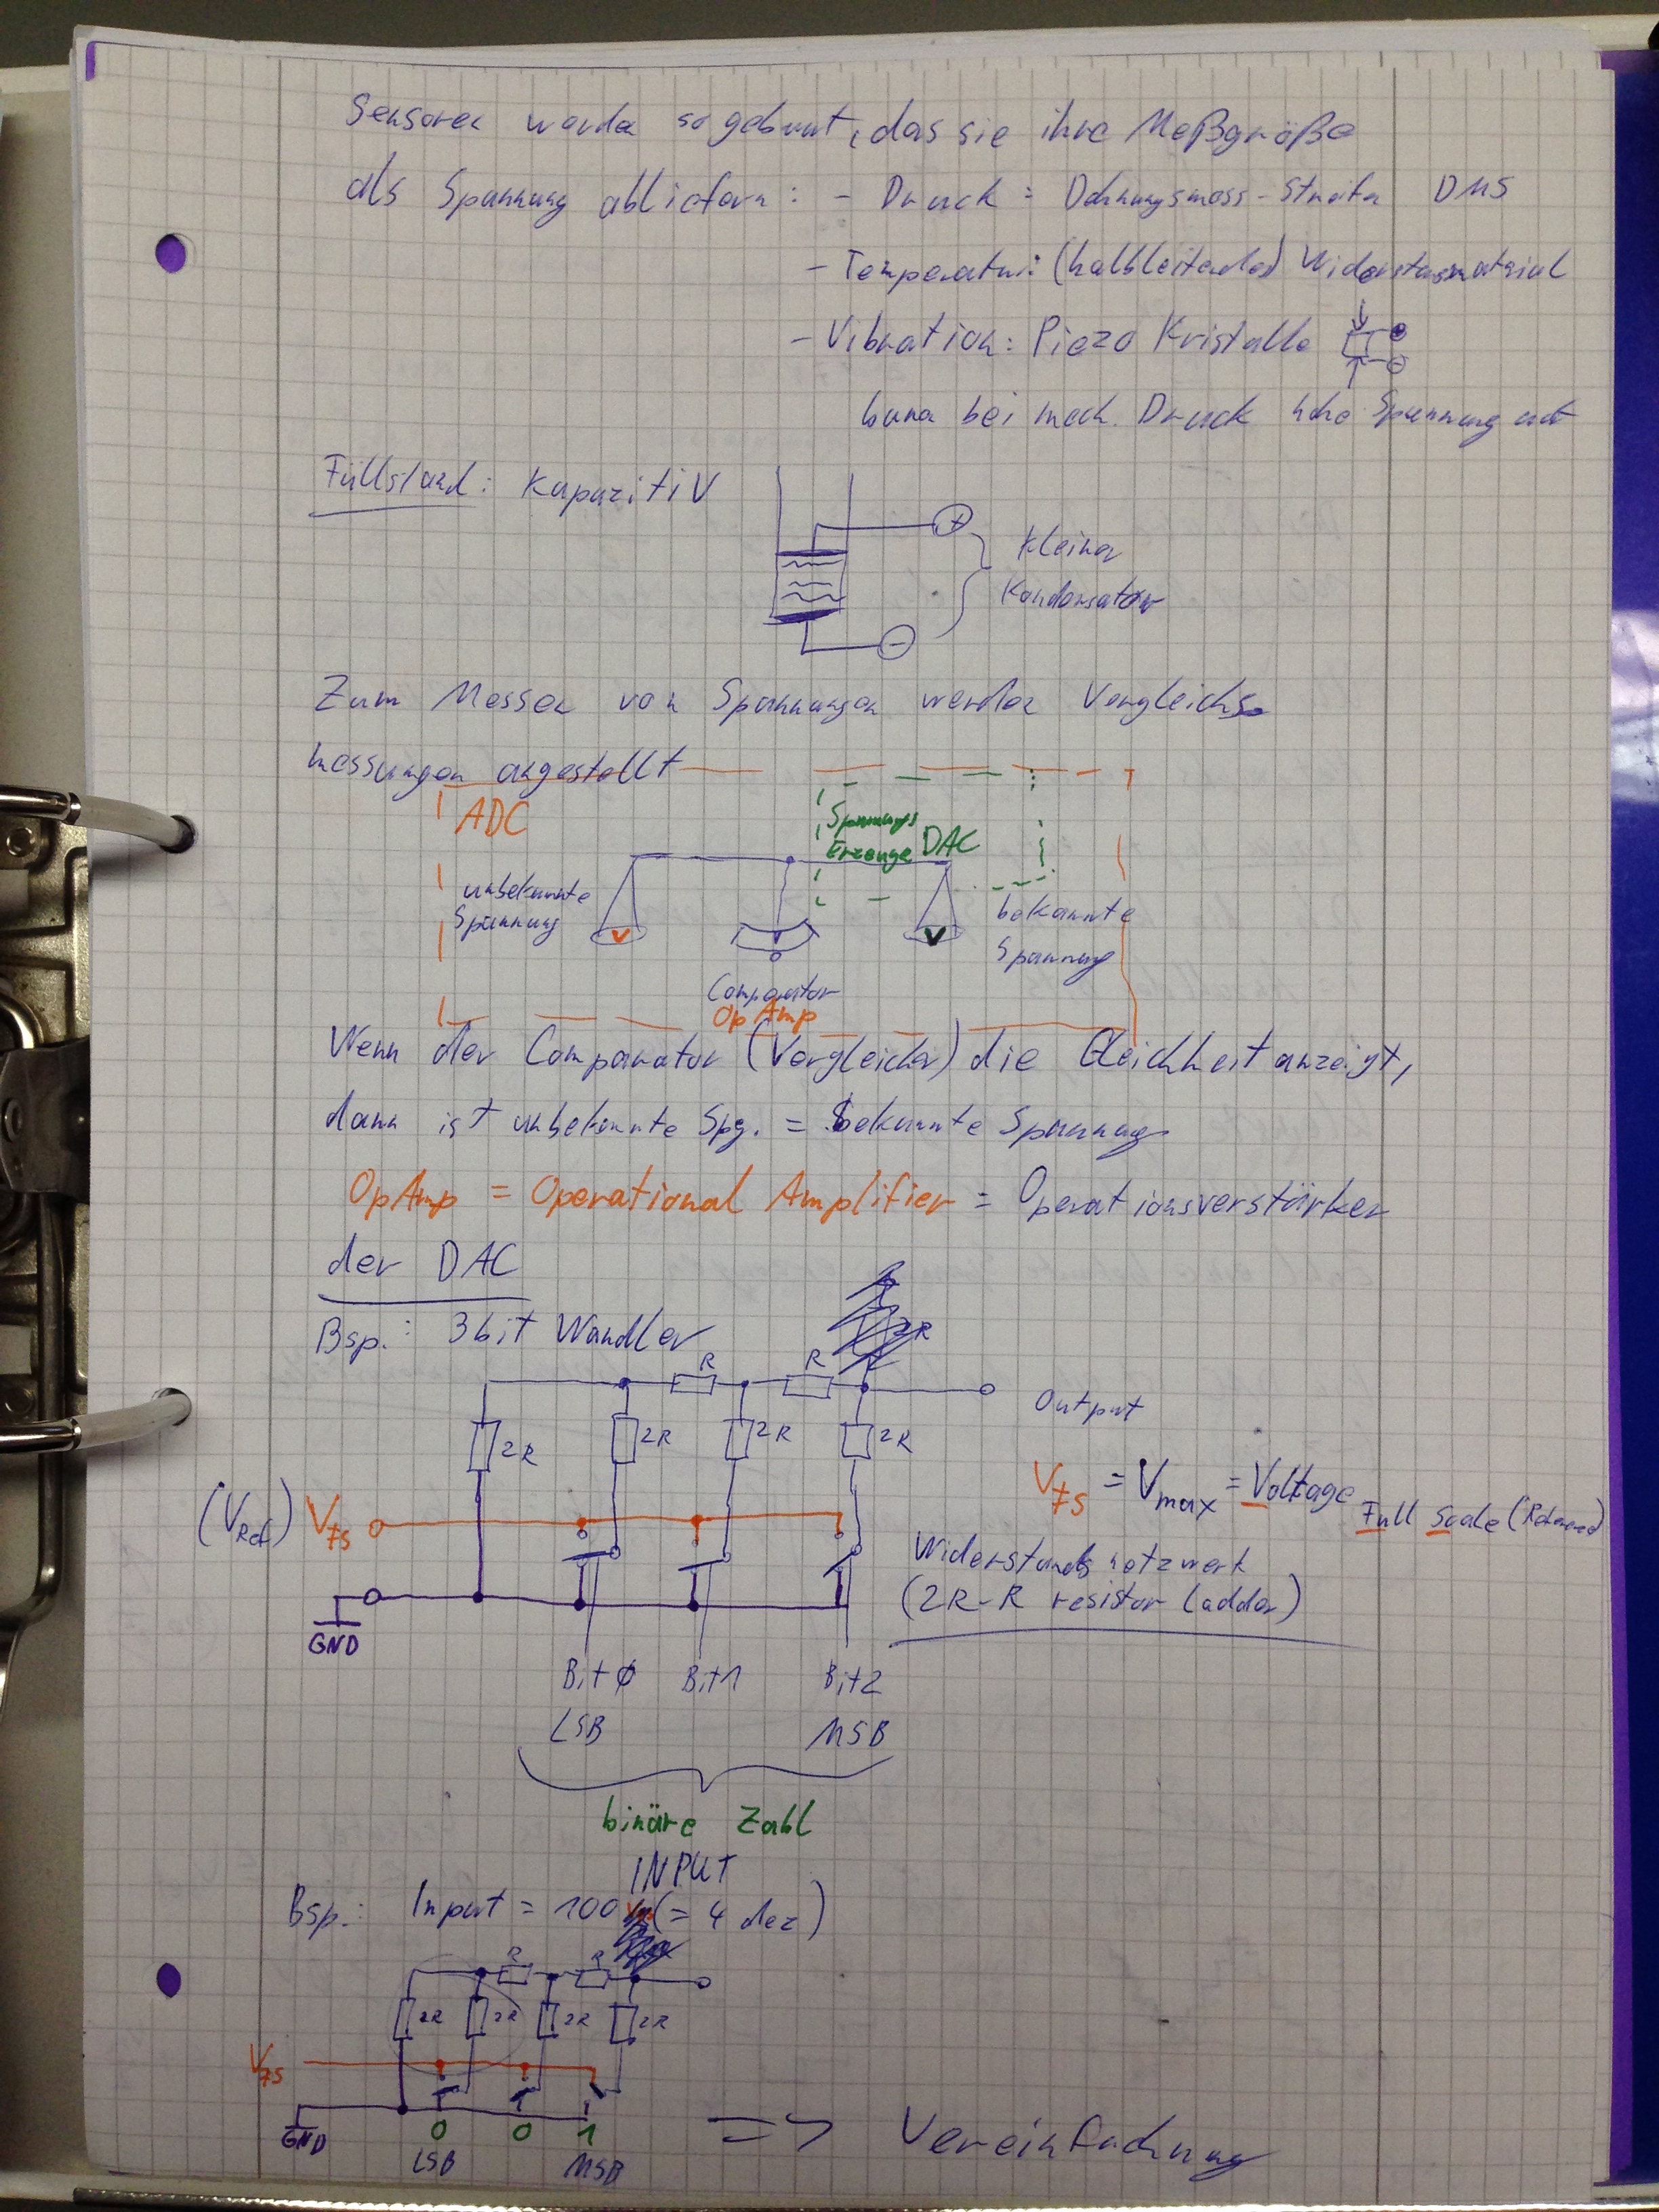 Sensoren werden so gebaut, das sie ihre Meßgröße
als Spannung abliefern: - Druck: Dehnungsmess-Streifen DMS
- Temperatur: (halbleitendes) Widerstandsmaterial
- Vibration: Piezo Kristalle
bauen bei mech. Druck hohe Spannung auf
Füllstand: Kapazitiv
+
kleiner
Kondensator
-
Zum Messen von Spannungen werden Vergleichs-
messungen angestellt
ADC
Spannungs
Erzeuge DAC
unbekannte
Spannung
V
V
bekannte
Spannung
Comparator
OpAmp
Wenn der Comparator (Vergleicher) die Gleichheit anzeigt,
dann ist unbekannte Spg. = bekannte Spannung
OpAmp = Operational Amplifier = Operationsverstärker
der DAC
Bsp.: 3bit Wandler
2R
R R
Output
2R 2R 2R 2R
(VRef) VFS
VFS = Vmax = Voltage Full Scale (Reference)
Widerstandsnetzwerk
(2R-R resistor ladder)
GND
Bit0 Bit1 Bit2
LSB MSB
binäre Zahl
INPUT
Bsp.: Input = 100 (= 4 dez)
R R
2R 2R 2R 2R
VFS
GND
0 0 1
LSB MSB
=> Vereinfachung